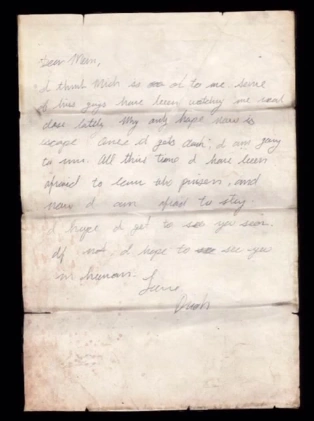 Dear Mom,
I think Mish is on to me. Some
of his guys have been watching me real
close lately. My only hope now is
escape. Once it gets dark, I am going
to run. All this time I have been
afraid to leave the prison, and
now I am afraid to stay.
I hope I get to see you soon.
If not, I hope to see you
in heaven.
Love